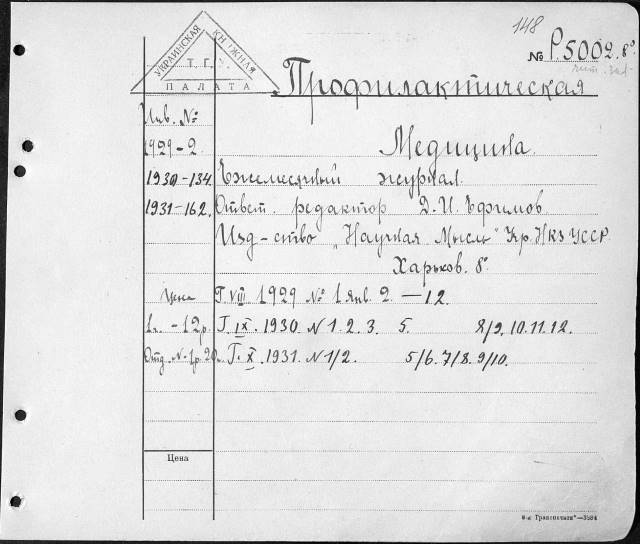 148
№ Р5002. 8°
УКРАИНСКАЯ КНИЖНАЯ
Т. Г.
ПАЛАТА
Профилактическая
Инв. №
1929-2 Медицина.
1930-134. Ежемесячный журнал.
1931-162. Ответ. редактор Д.И. Ефимов
Изд-ство „Научная Мысль" Кр. НКЗ УССР
Харьков. 8°
Цена Г. VIII 1929 № 1 янв. 2. —12.
1 -12р. Г. IX. 1930. N 1. 2. 3. 5. 8/9. 10. 11. 12.
Отд. N-1р.20 Г. X. 1931. N 1/2. 5/6. 7/8. 9/10.
Цена